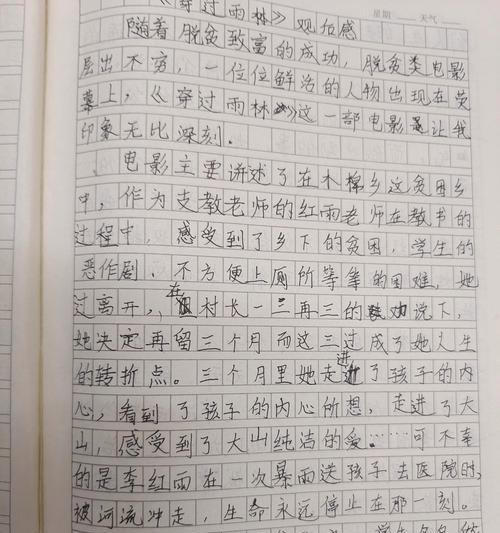 《穿过雨林》观后感
星期 天气
随着脱贫致富的成功，脱贫类电影
层出不穷，一位位鲜活的人物出现在荧
幕上，《穿过雨林》这一部电影让我
印象无比深刻。
电影主要讲述了在木棉乡这贫困乡
中，作为支教老师的红雨老师在教书的
过程中，感受到了乡下的贫困，学生的
恶作剧、不方便上厕所等等的困难，她
过离开，在村长一二再三的劝说下，
她决定再留三个月而这三过成了她人生
的转折点。三个月里她走进了孩子的内
心，看到了孩子的内心所想，走进了大
山，感受到了大山纯洁的爱……可不幸
的是李红雨在一次暴雨送孩子去医院时，
被河流冲走，生命永远停止在那一刻。